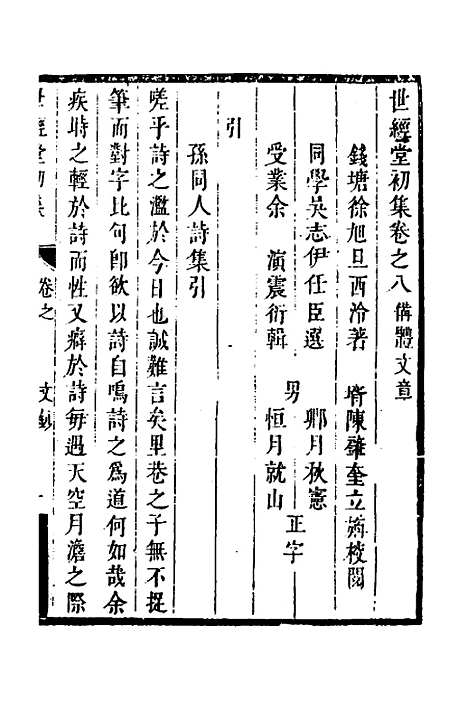 世經堂初集卷之八 備體文章
錢塘徐旭旦西泠著 壻陳雝奎立菊校閱
同學吳志伊任臣選 鄉月秋憲
受業余 演震衍輯 男 恒月就山 正字
引
孫同人詩集引
嗟乎詩之濫於今日也誠難言矣里巷之子無不捉
筆而對字比句卽欲以詩自鳴詩之爲道何如哉余
疾時之輕於詩而性又癖於詩每遇天空月澹之際
世經堂初集 卷之 文鈔